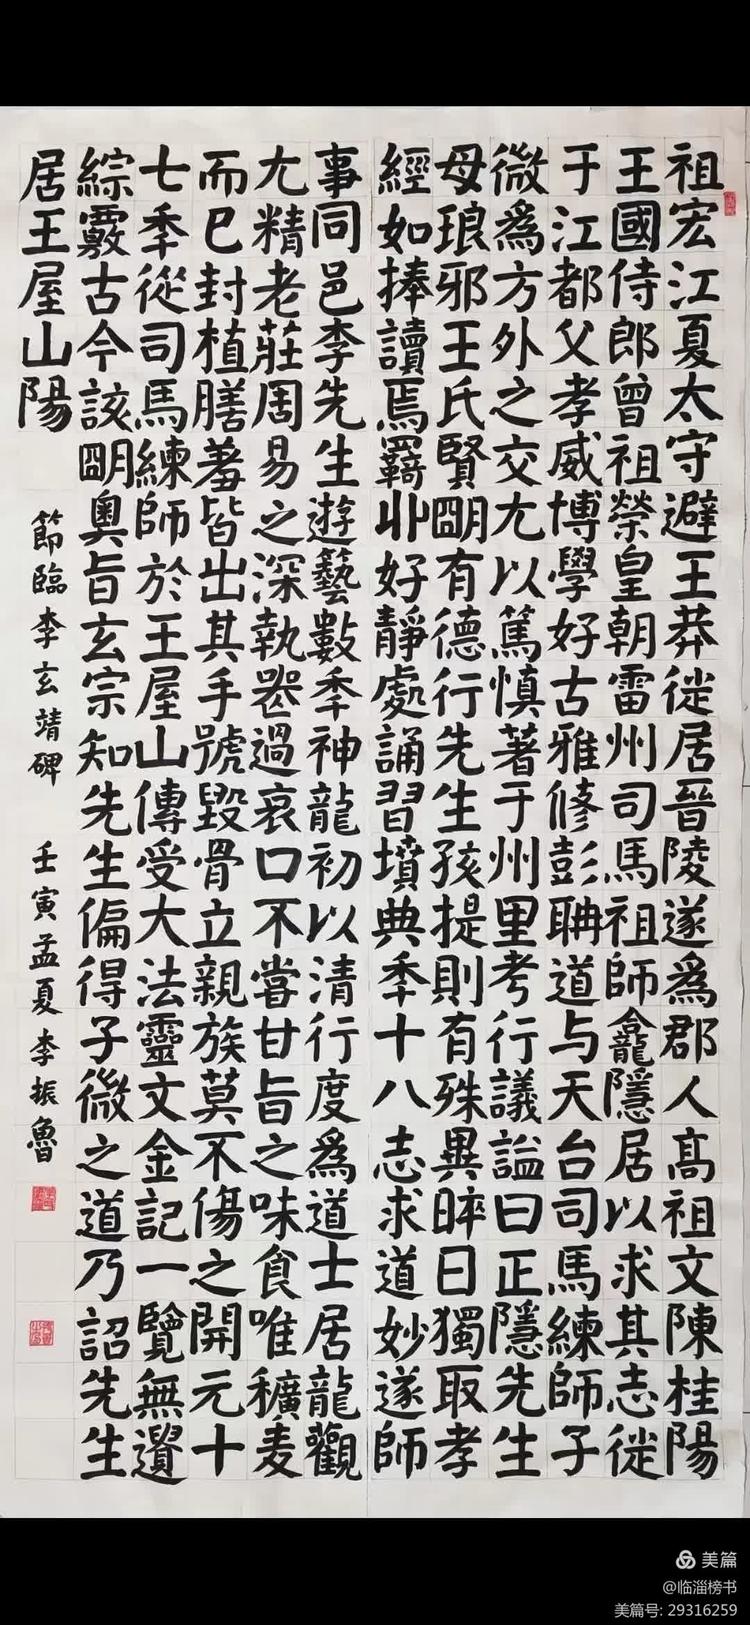 祖宏江夏太守避王莽徙居晉陵遂爲郡人髙祖文陳桂陽
王國侍郎曾祖榮皇朝雷州司馬祖師龕隱居以求其志徙
于江都父孝威博學好古雅修彭聃道与天台司馬練師子
微爲方外之交尢以篤慎著于州里考行議謚曰正隱先生
母琅邪王氏賢朙有德行先生孩提則有殊異晬日獨取孝
經如捧讀焉羇丱好靜處誦習墳典秊十八志求道妙遂師
事同邑李先生遊藝數秊神龍初以清行度爲道士居龍觀
尢精老莊周易之深執器過哀口不嘗甘旨之味食唯穬麦
而已封植膳羞皆出其手號毀骨立親族莫不傷之開元十
七秊從司馬練師於王屋山傳受大法靈文金記一覽無遺
綜覈古今該朙奧旨玄宗知先生偏得子微之道乃詔先生
居王屋山陽
節臨李玄靖碑 壬寅孟夏李振魯
美篇
@临淄榜书
美篇号: 29316259